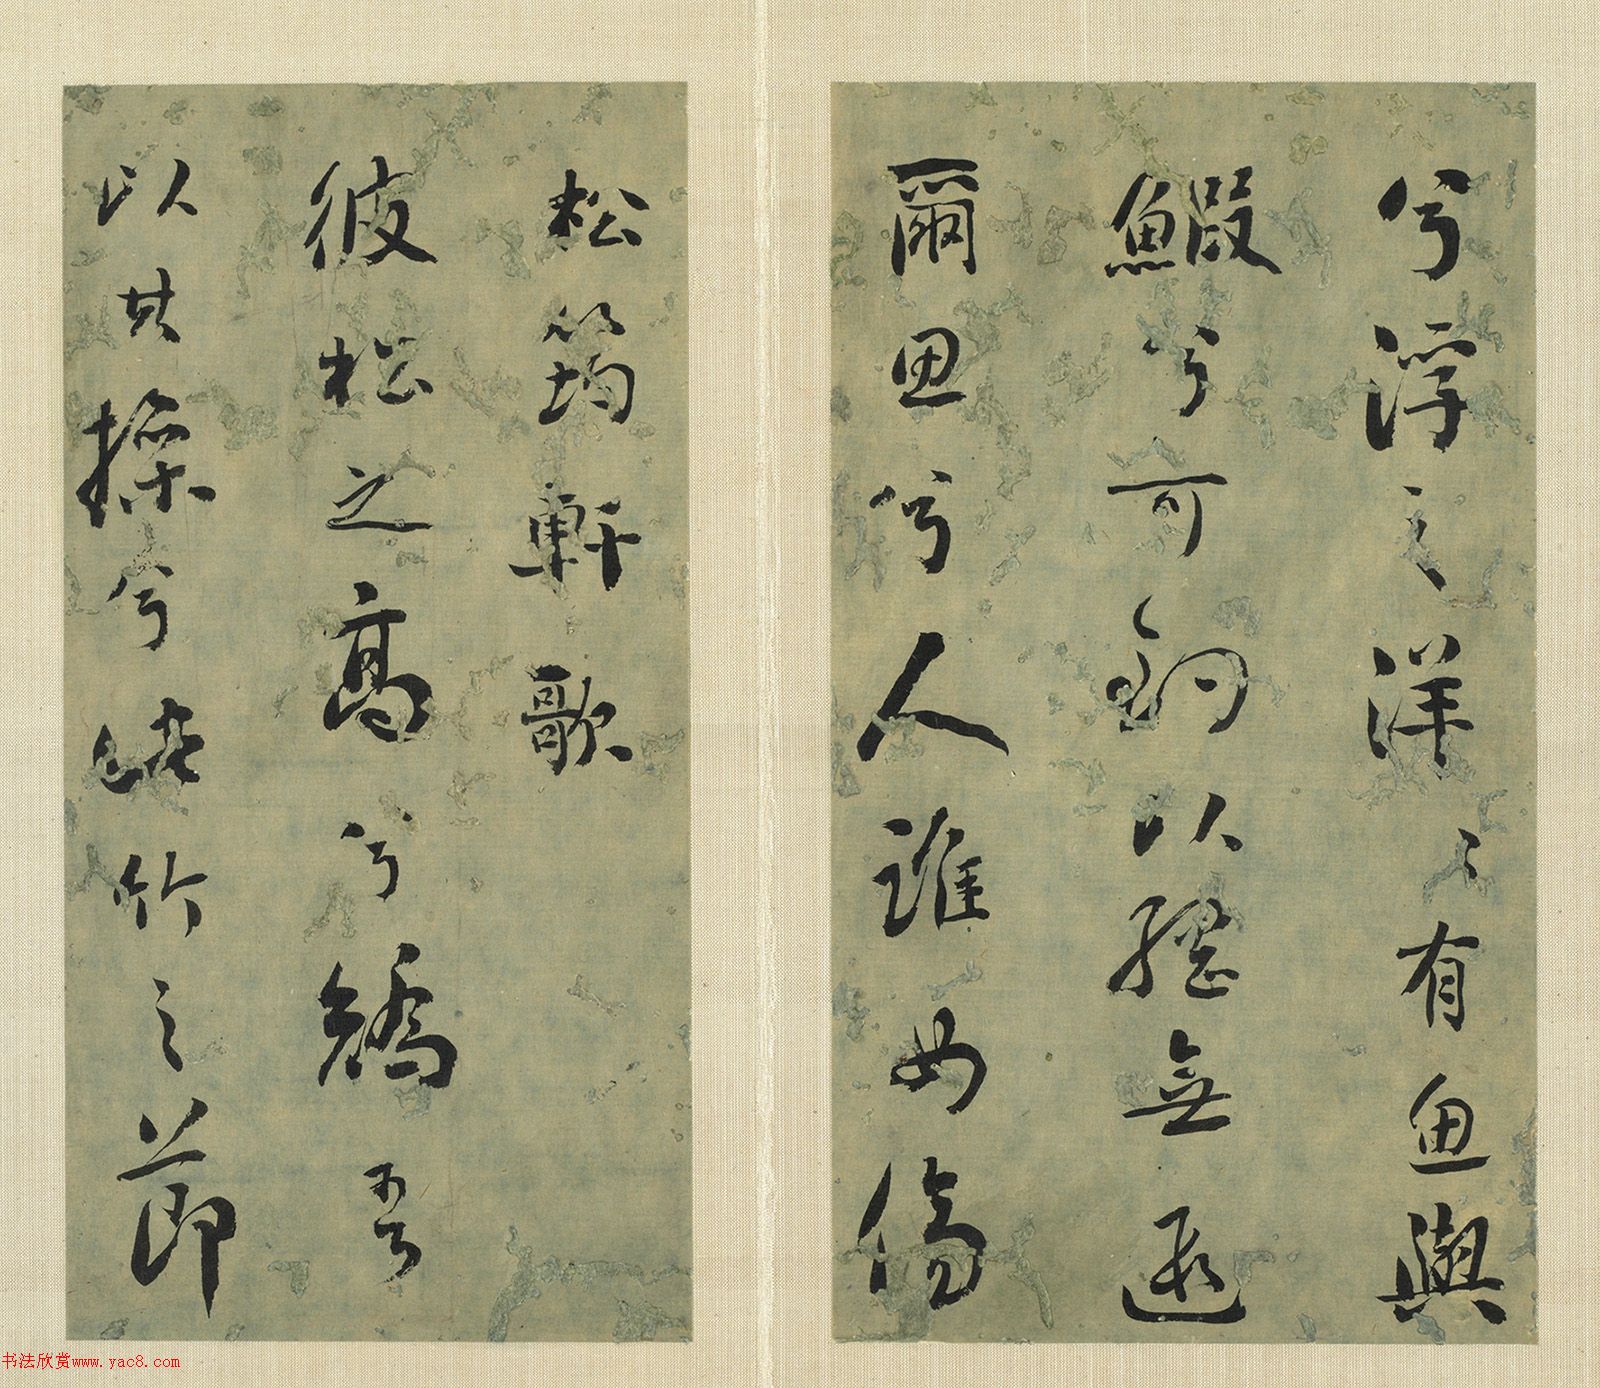 兮浮之洋〻有魚與
鰕兮可釣以繙無遐
爾思兮人誰女傷
松筠軒歌
彼松之高兮矯吾
以其操兮此竹之節
书法欣赏www.yac8.com